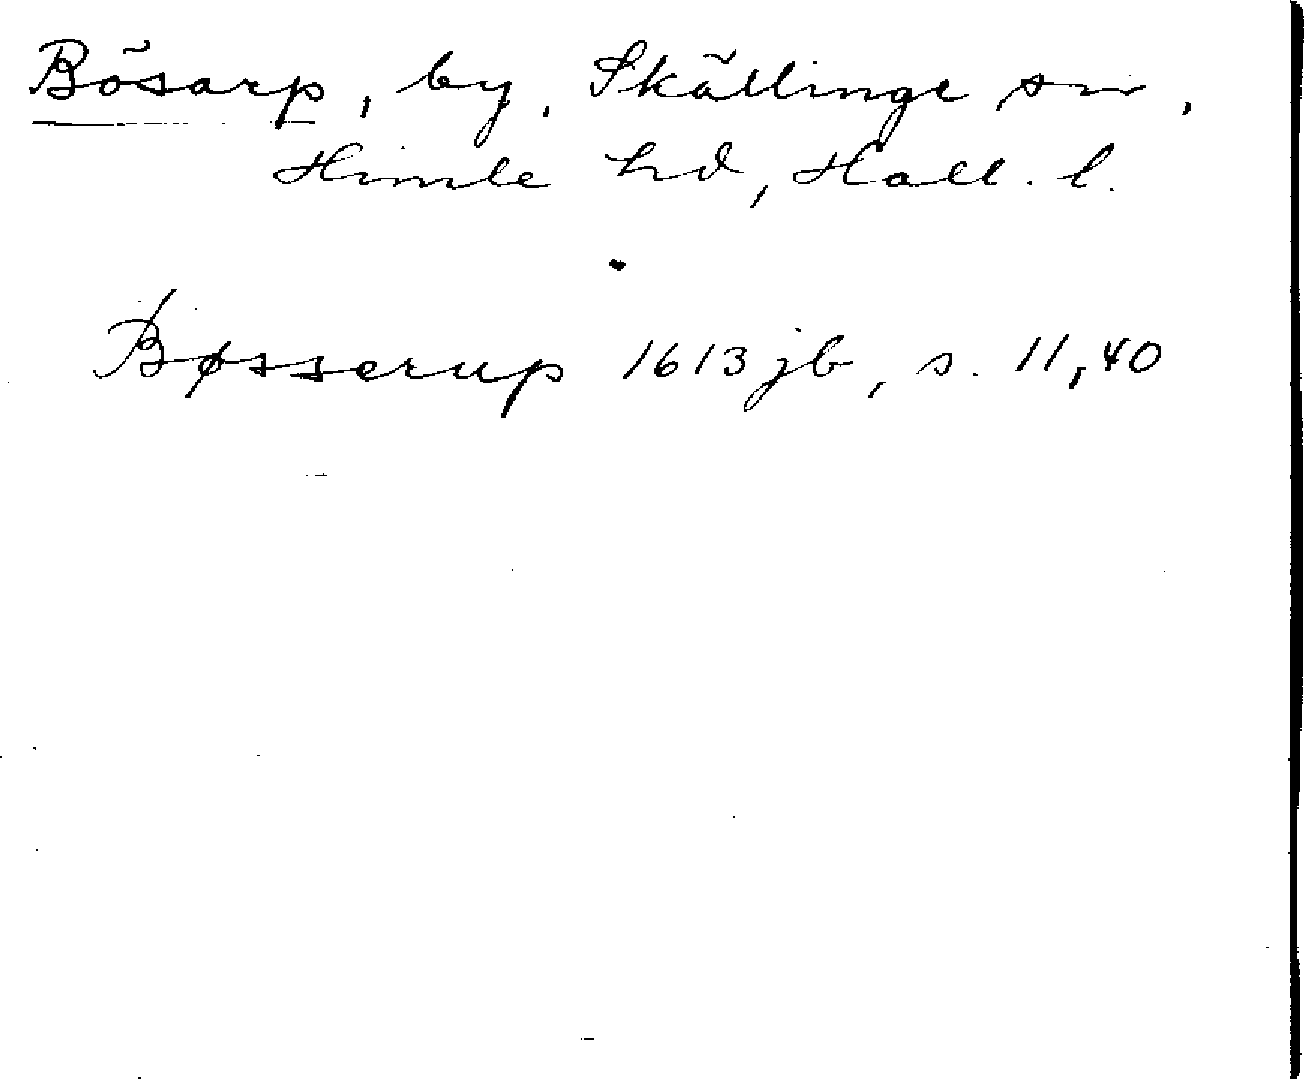 Bösarp, by, Skällinge sn,
Himle hd, Hall. l.
Bøsserup 1613 jb, s. 11,40